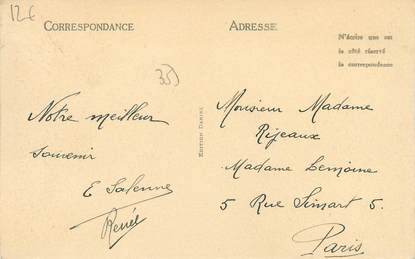 12€
CORRESPONDANCE
ADRESSE
N'écrire que sur
le côté réservé
la correspondance
35
Notre meilleur
souvenir
E Salenne
Renée
EDITION
Monsieur Madame
Rijeaux
Madame Lemoine
5 Rue Simart 5.
Paris